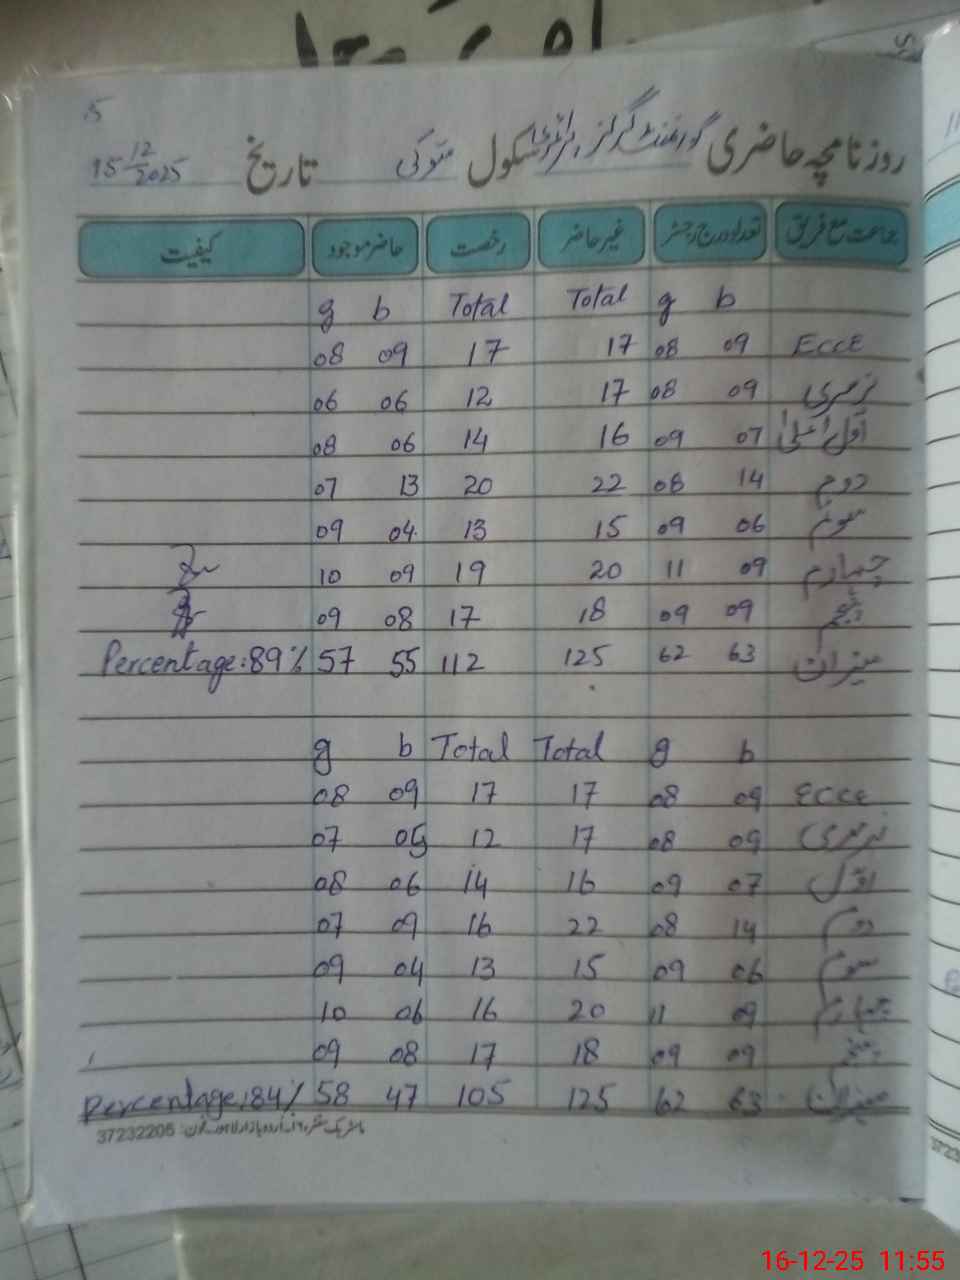 5
روزنامچہ حاضری گورنمنٹ گرلز پرائمری سکول متوکی تاریخ 15 12/2025
جماعت مع فریق تعداد درج رجسٹر غیر حاضر رخصت حاضر موجود کیفیت
g b Total Total g b
08 09 17 17 08 09 ECCE
06 06 12 17 08 09 نرسری
08 06 14 16 09 07 اول اعلیٰ
07 13 20 22 08 14 دوم
09 04 13 15 09 06 سوئم
10 09 19 20 11 09 چہارم
09 08 17 18 09 09 پنجم
Percentage:89% 57 55 112 125 62 63 میزان
g b Total Total g b
08 09 17 17 08 09 ECCE
07 05 12 17 08 09 نرسری
08 06 14 16 09 07 اول
07 09 16 22 08 14 دوم
09 04 13 15 09 06 سوم
10 06 16 20 11 09 چہارم
09 08 17 18 09 09 پنجم
Percentage:84% 58 47 105 125 62 63 میزان
37232205
16-12-25 11:55